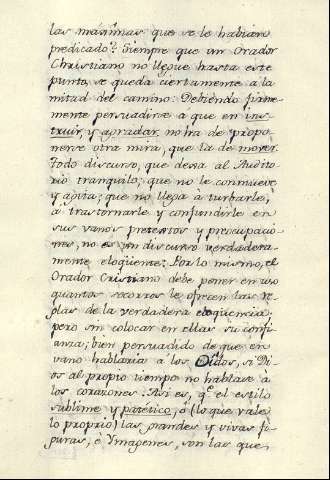 las maximas que se le habian
predicado? Siempre que un Orador
Christiano no llegue hasta este
punto, se queda ciertamente a la
mitad del camino. Debiendo firme-
mente persuadirse a que en ins-
truir, y agradar no ha de propo-
nerse otra mira, que la de mover.
Todo discurso, que dexa al Audito-
rio tranquilo; que no le conmueve
y agita; que no llega à turbarle,
à trastornarle y confundirle en
sus vanos pretextos y preocupacio-
nes, no es un discurso verdadera-
mente eloqüente. Por lo mismo, el
Orador Cristiano debe poner en uso
quantos socorros le ofrecen las re-
glas de la verdadera eloqüencia,
pero sin colocar en ellas su confi-
anza; bien persuadido de que en
vano hablaria a los Oidos, si Di-
os al propio tiempo no hablase à
los corazones. Asi es, q.e el estilo
sublime y patetico, ô (lo que vale
lo proprio) las grandes y vivas fi-
guras, è Ymagenes, son las que,